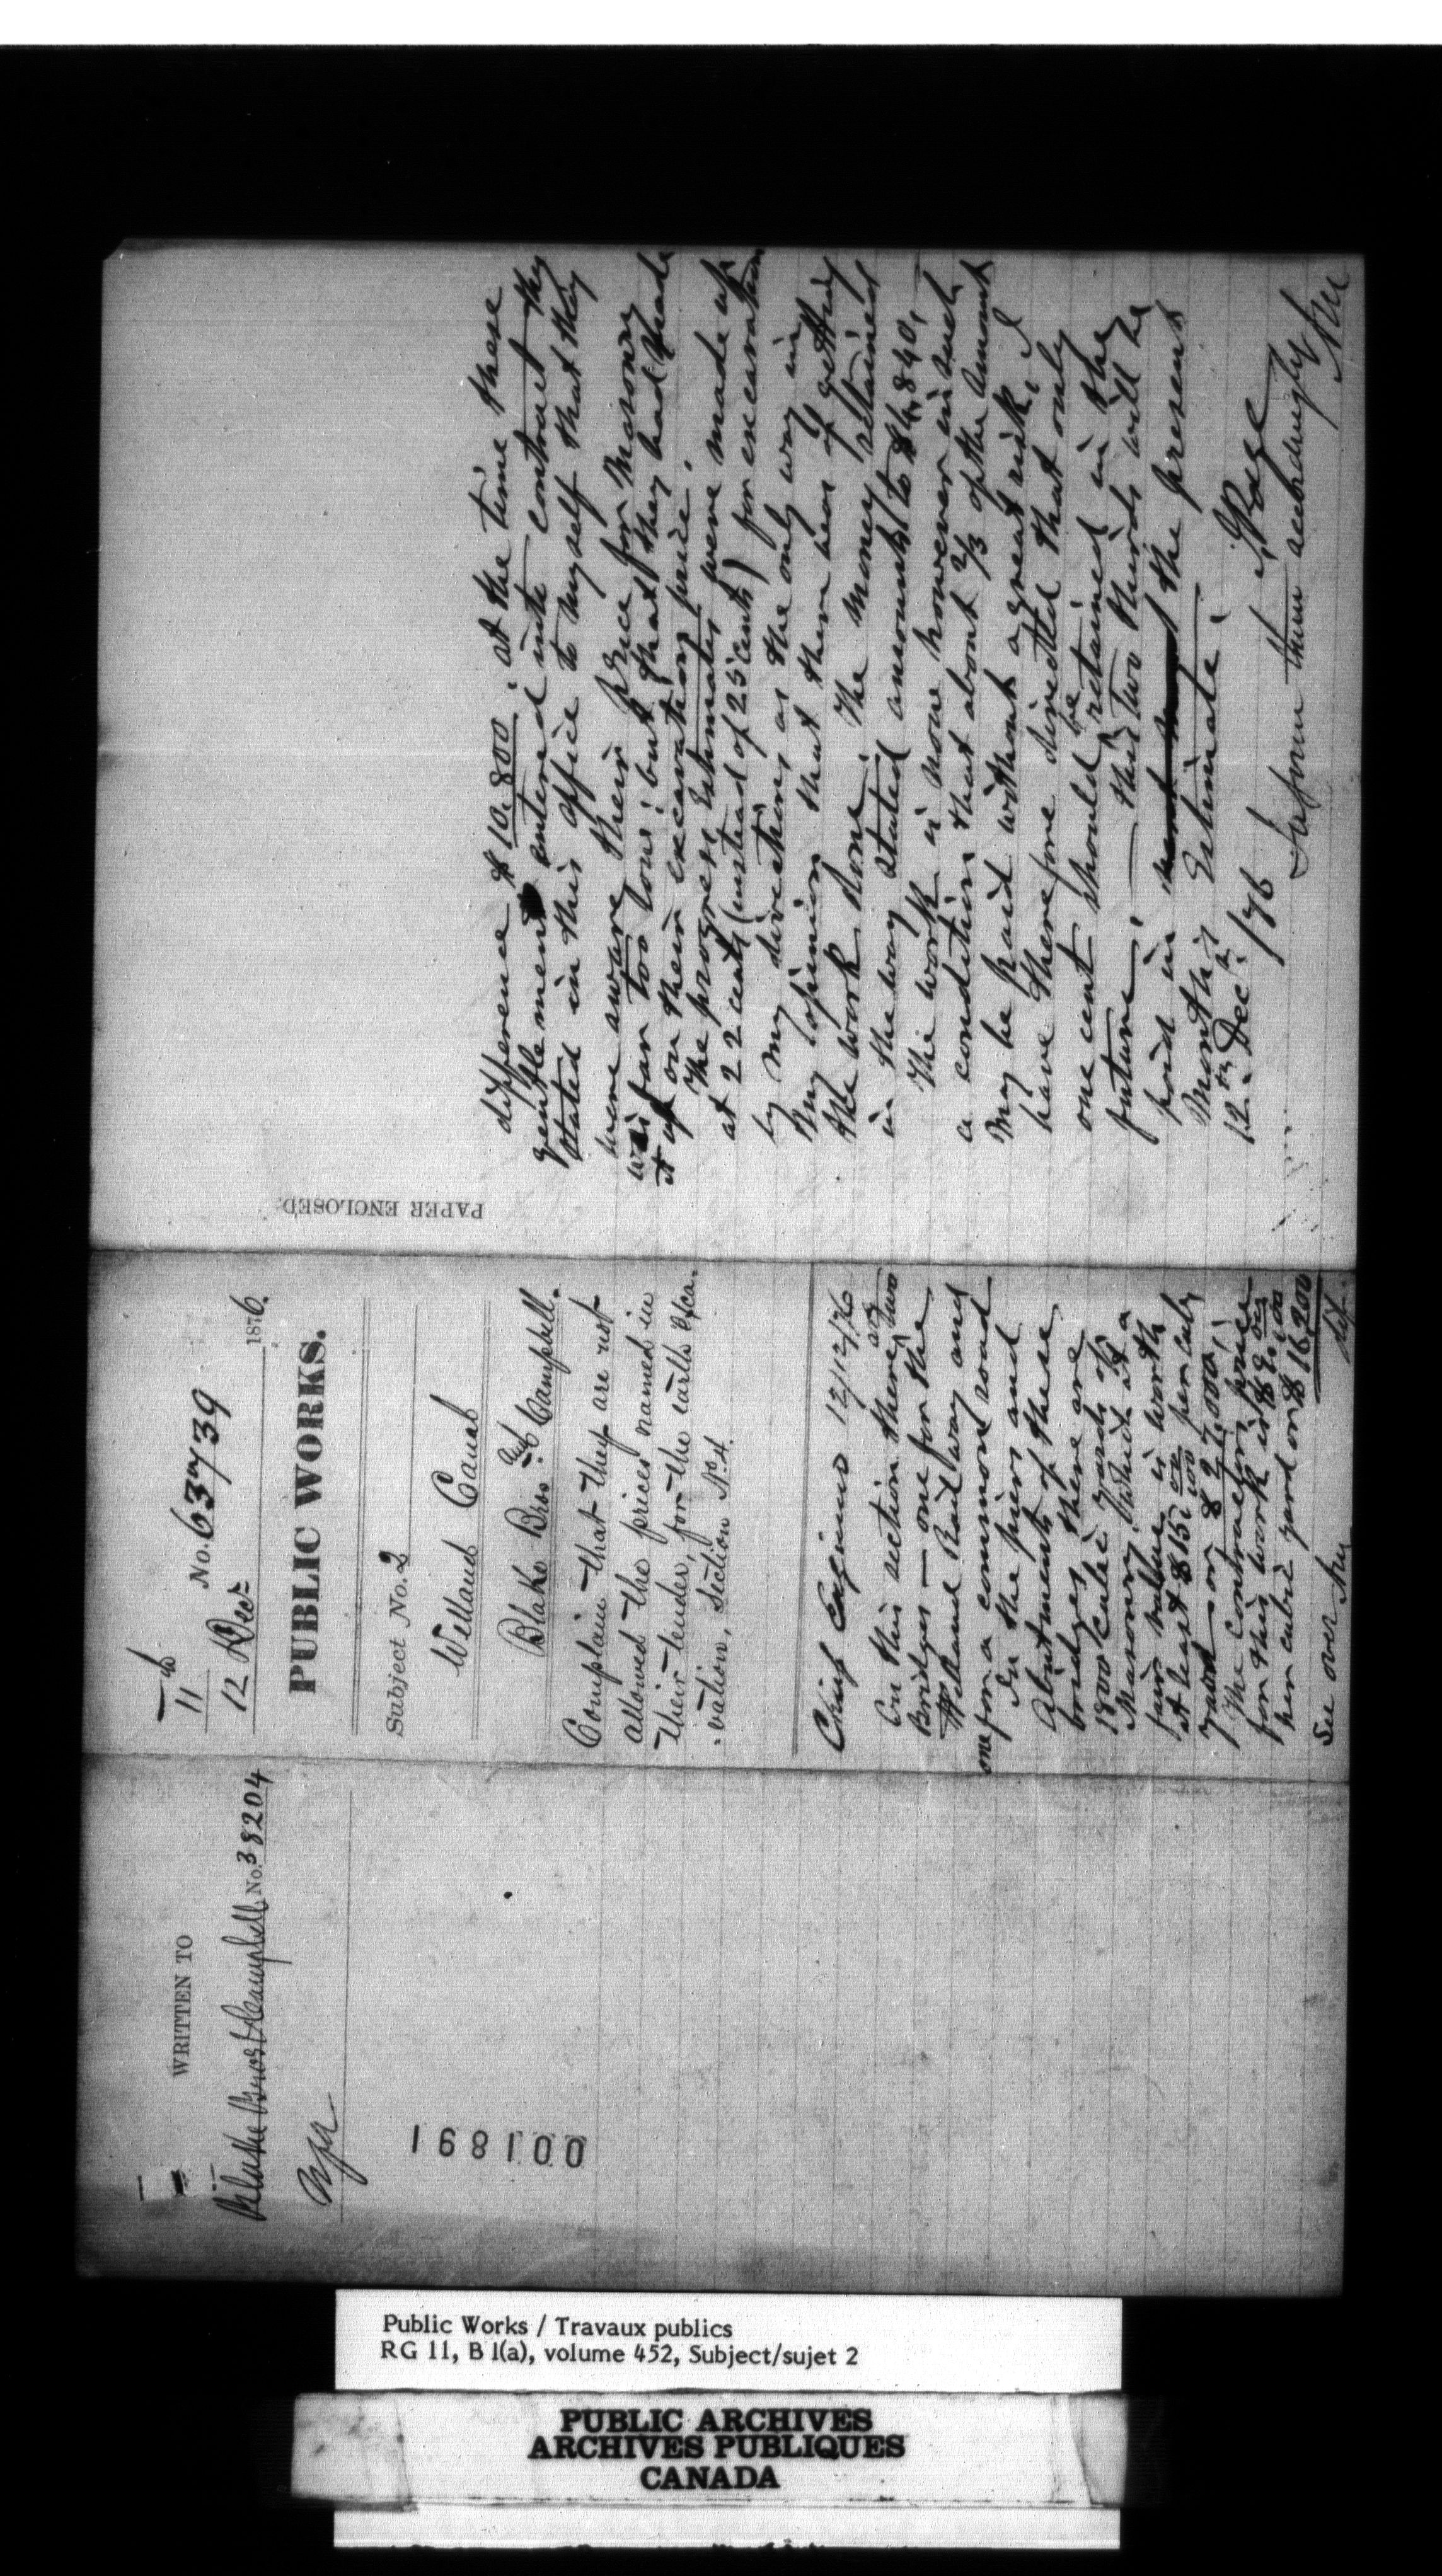 WRITTEN TO
Blake Bros & Campbell No. 38204
001891
11
12 Decr No. 63739 1876.
PUBLIC WORKS.
Subject No. 2
Welland Canal
Blake Bros and Campbell.
Complain that they are not
allowed the prices named in
their tender, for the earth Exca-
-vation, Section No. 4.
Chief Engineer 12/12/76
On this section there are two
Bridges — one for the
Welland Railway and
one for a common road
In the piers and
Abutments of these
bridges there are
1800 cubic yards of
Masonry, which at a
fair value is worth
at least $15 00/100 per cubic
yard or $27,000;
The Contractors price
for this work is $9 00/100
per cubic yard or $16,200
dif-
See over
PAPER ENCLOSED.
difference $10,800. at the time these
gentlemen entered into contract they
stated in this office to myself that they
were aware their price for Masonry
was far too low; but that they had made
it up on their excavation price.
The progress Estimates were made up
at 22 cents (instead of 25 cents) for excavation
by my directions as the only way in
my opinion that there was of getting
the work done. The money retained
in the way stated amounts to $4,840,
The work is now however in such
a condition that about 2/3 of the amount
may be paid without a great risk, I
have therefore directed that only
one cent should be retained in the
future, — the two thirds will be
paid in the present
Month's Estimate.
12th Decr /76 J Page
Inform them accordingly
Public Works / Travaux publics
RG 11, B 1(a), volume 452, Subject/sujet 2
PUBLIC ARCHIVES
ARCHIVES PUBLIQUES
CANADA